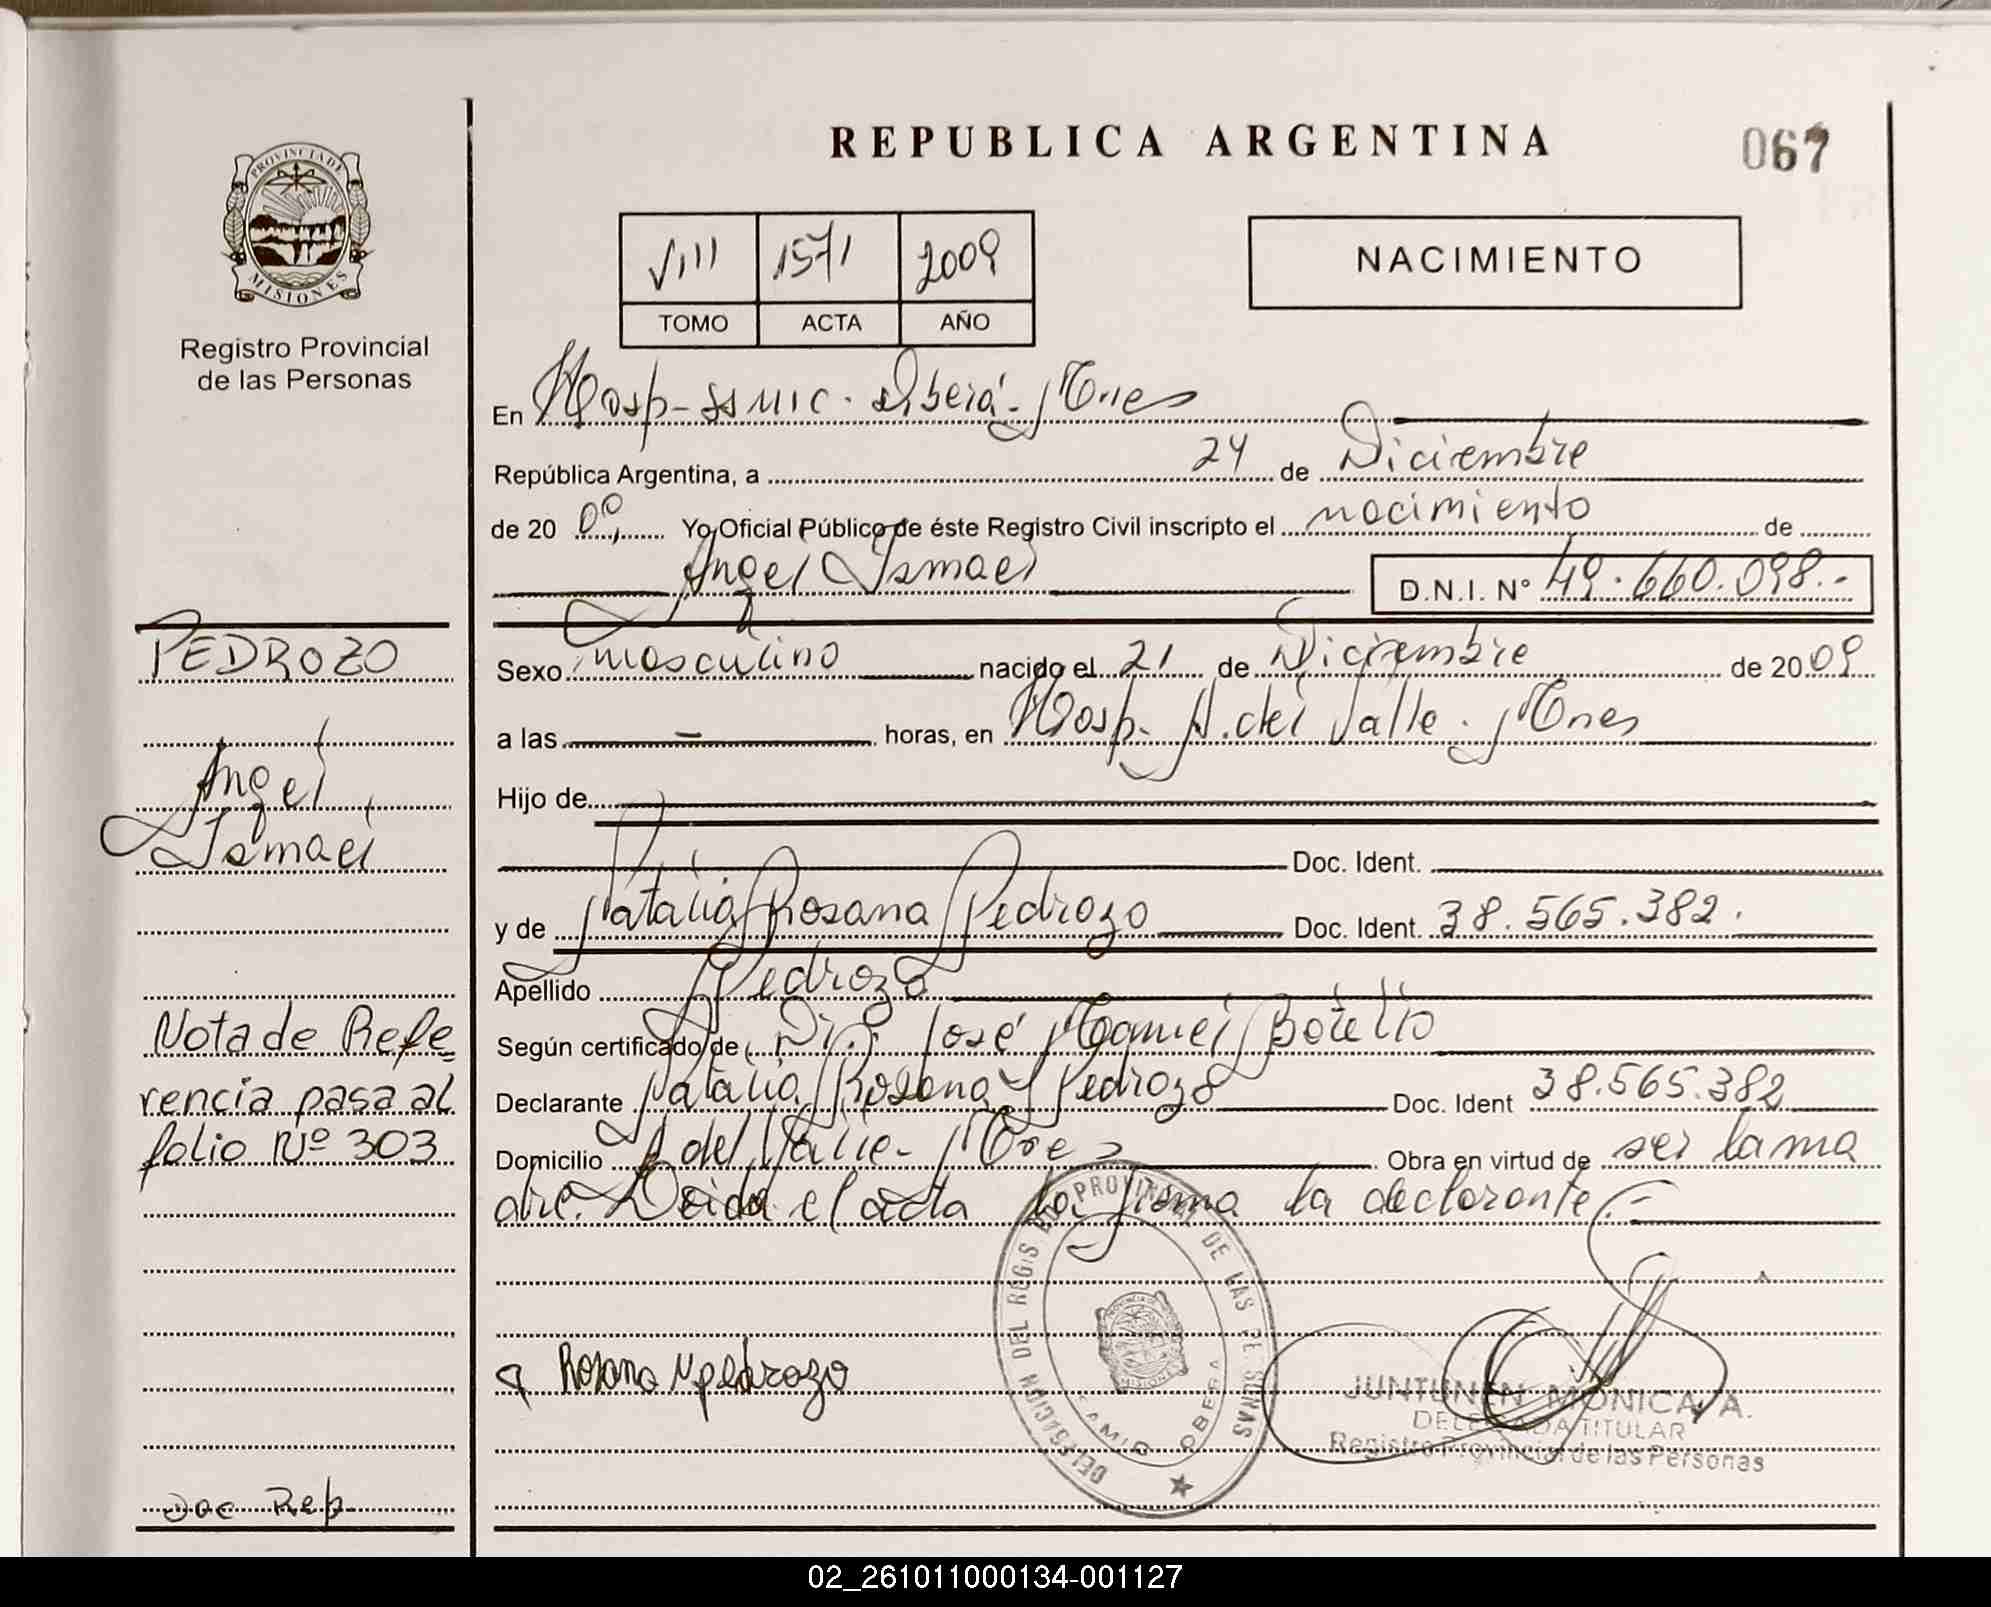 REPUBLICA ARGENTINA
067
PROVINCIA DE
MISIONES
Registro Provincial
de las Personas
VIII 1571 2009
TOMO ACTA AÑO
NACIMIENTO
En Hosp. Mnes
República Argentina, a 24 de Diciembre
de 20 09 Yo Oficial Público de éste Registro Civil inscripto el nacimiento de
Angel Ismael D.N.I. Nº 49.660.098.-
PEDROZO
Angel
Ismael
Nota de Refe
rencia pasa al
folio Nº 303
Doc Rep
Sexo masculino nacido el 21 de Diciembre de 2009
a las - horas, en Hosp. A. del Valle. Mnes
Hijo de
Doc. Ident.
y de Natalia Rosana Pedrozo Doc. Ident. 38.565.382.
Apellido Pedrozo
Según certificado de José Manuel Botello
Declarante Natalia Rosana Pedrozo Doc. Ident 38.565.382
Domicilio A del Valle - Mnes Obra en virtud de ser la ma
dre. Leida el acta la firma la declarante.-
Rosana N pedrozo
DELEGACION DEL REGIS RO PROVINCIAL DE LAS PE SONAS
OBERA
JUNTUNEN MONICA A.
DELEGADA TITULAR
Registro Provincial de las Personas
02_261011000134-001127